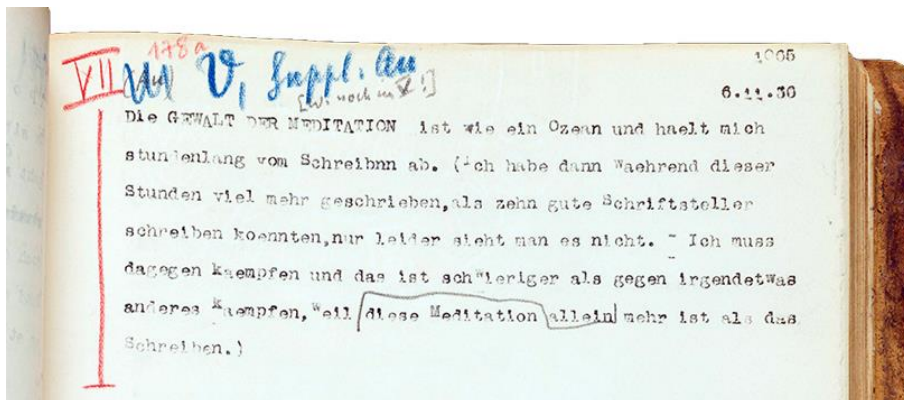 178a
1065
VII
V, Suppl. Au
6.11.36
[W. noch in V!]
Die GEWALT DER MEDITATION ist wie ein Ozean und haelt mich
stundenlang vom Schreibnn ab. (Ich habe dann Waehrend dieser
Stunden viel mehr geschrieben,als zehn gute Schriftsteller
schreiben koennten,nur leider sieht man es nicht. - Ich muss
dagegen kaempfen und das ist schwieriger als gegen irgendetwas
anderes kaempfen, weil diese Meditation allein mehr ist als das
Schreiben.)